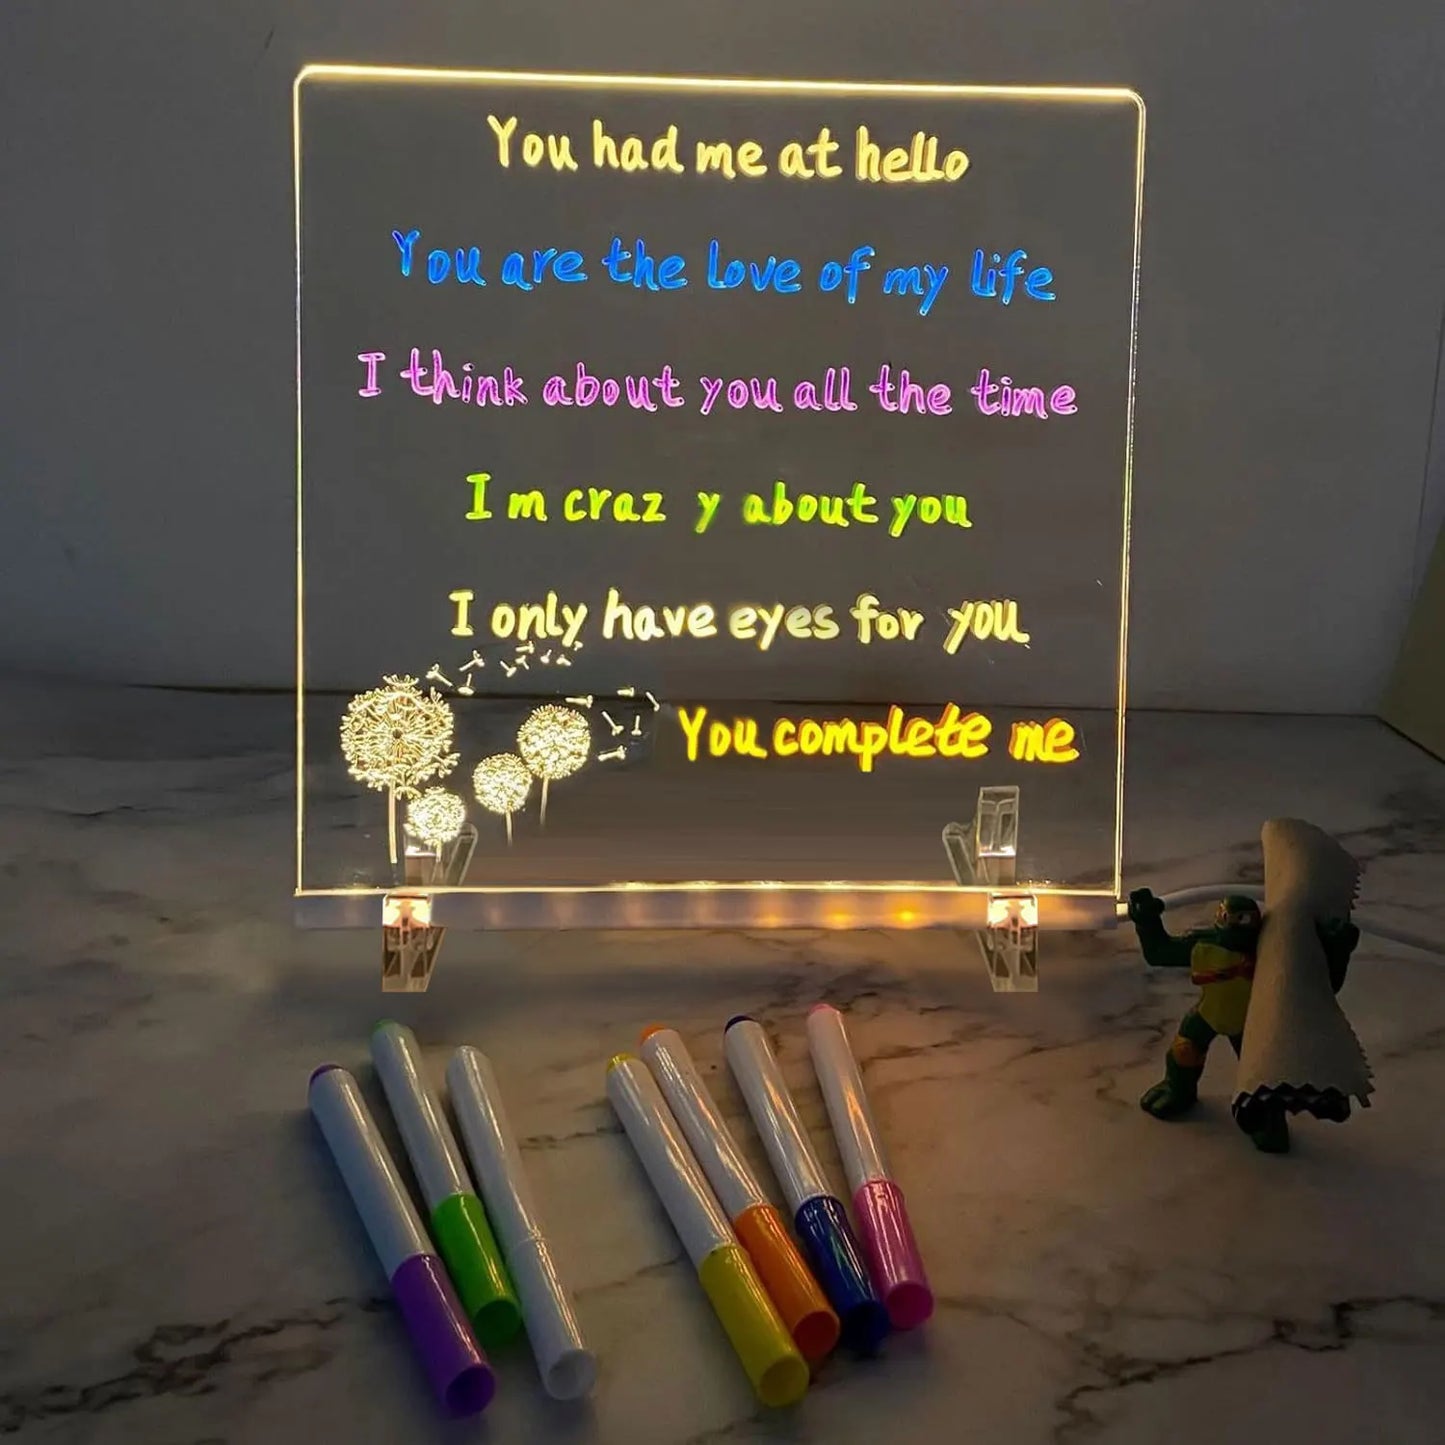 You had me at hello
You are the love of my life
I think about you all the time
I m craz y about you
I only have eyes for you
You complete me